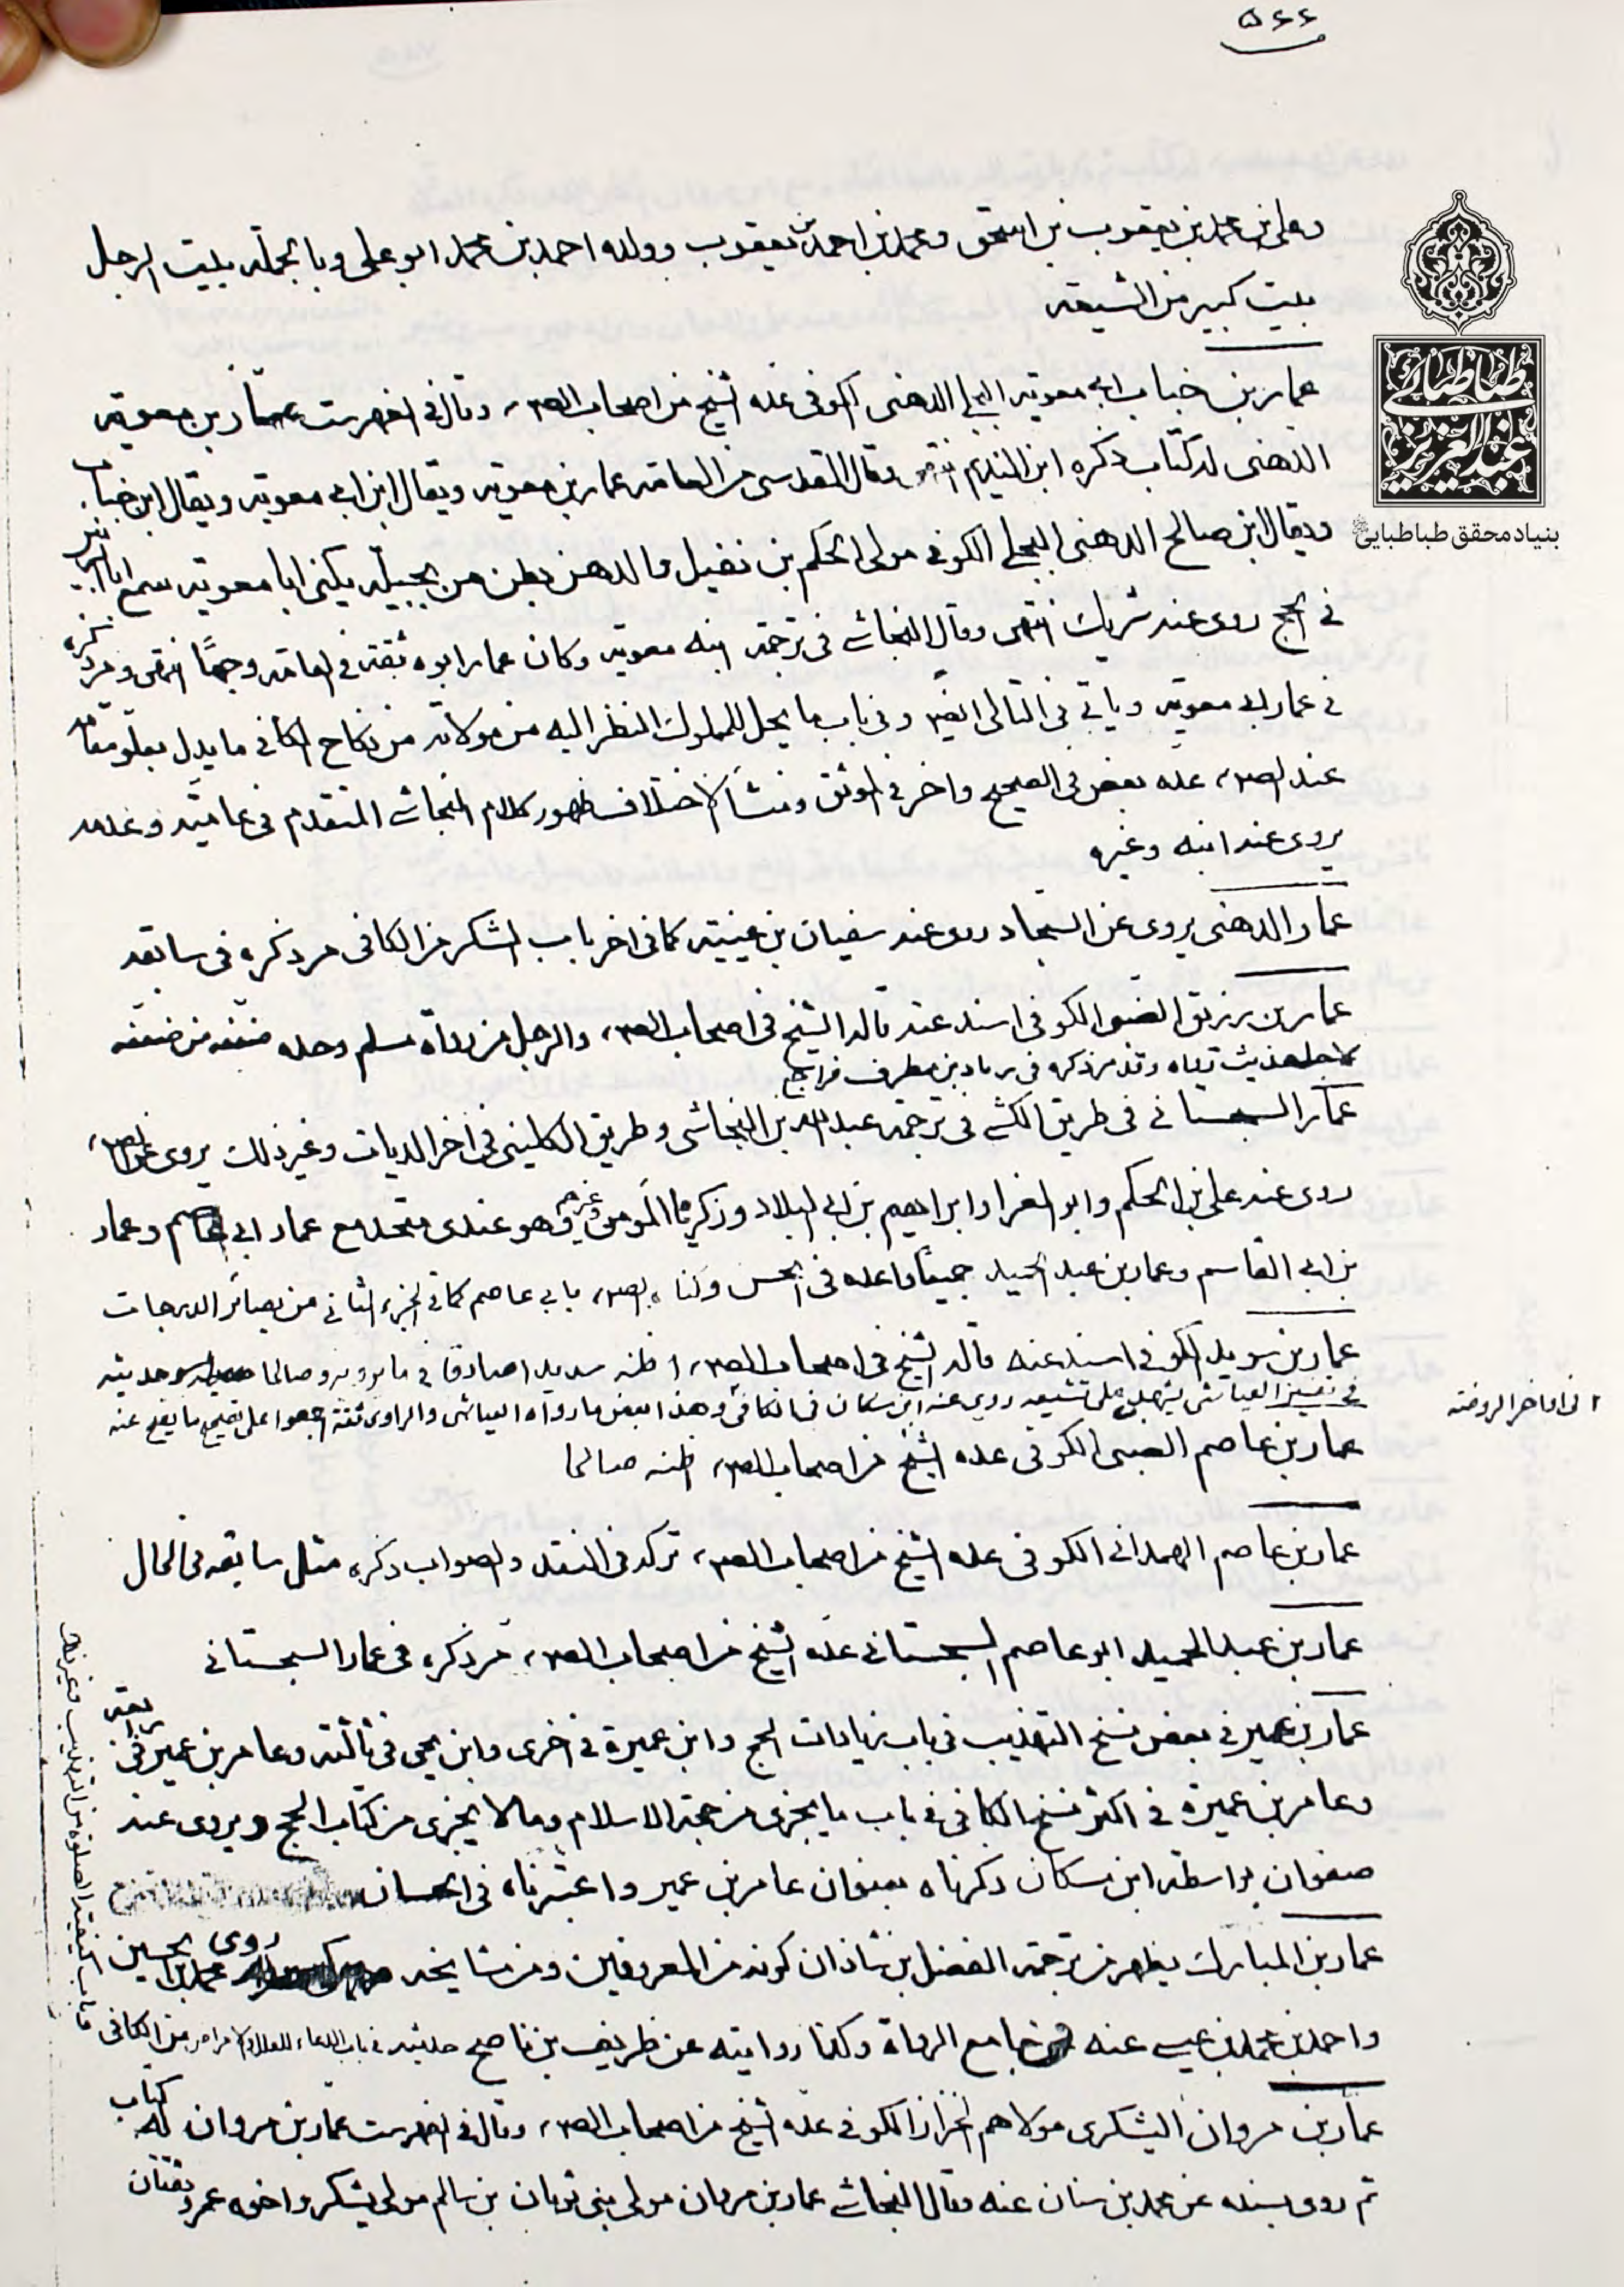 ۵۶۶
وعلي بن محمد بن يعقوب بن اسحق ومحمد بن احمد بن يعقوب وولده احمد بن محمد ابو علي وبالجملة بيت الرجل
بيت كبير من الشيعة
عمار بن خباب ابي معوية البجلي الدهني الكوفي عده الشيخ من اصحاب الص، وقال في الفهرست عمار بن معوية
الدهني له كتاب ذكره ابن النديم انتهى وقال المقدسي من العامة عمار بن معوية ويقال ابن ابي معوية ويقال ابن خباب
ويقال ابن صالح الدهني البجلي الكوفي مولى الحكم بن نفيل والدهن بطن من بجيلة يكنى ابا معوية سمع ابا الزبير
في الحج روى عنه شريك انتهى وقال النجاشي في ترجمة ابنه معوية وكان عمار ابوه ثقة في العامة وجها انتهى ومر ذكره
في عمار ابي معوية وياتي في التالي ايضا وفي باب ما يحل للمملوك النظر اليه من مولاته من نكاح الكافي ما يدل بعلو مقامه
عند الص، عده بعض في الصحيح واخر في الموثق ومنشأ الاختلاف ظهور كلام النجاشي المتقدم في عاميته وعدمه
يروي عنه ابنه وغيره
عمار الدهني يروي عن السجاد روى عنه سفيان بن عيينة كما في اخر باب الشكر من الكافي مر ذكره في سابقه
عمار بن رزيق الضبي الكوفي اسند عنه قاله الشيخ في اصحاب الص، والرجل من رواة مسلم وحده ضعفه من ضعفه
لاجل حديث رواه وقد مر ذكره في زياد بن مطرف فراجع
عمار السجستاني في طريق الكشي في ترجمة عبد الله بن النجاشي وطريق الكليني في اخر الديات وغير ذلك يروي عن الص،
روى عنه علي بن الحكم وابو المغرا وابراهيم بن ابي البلاد وزكريا المؤمن وغيرهم وهو عندي متحد مع عمار ابي عاصم وعمار
بن ابي القاسم وعمار بن عبد الحميد جميعا واعده في الحسن وكناه الص، بابي عاصم كما في الجزء الثاني من بصائر الدرجات
عمار بن سويد الكوفي اسند عنه قاله الشيخ في اصحاب الص، اظنه سديدا صادقا في ما يرويه وصالحا وحديثه
في تفسير العياشي يشهد على تشيعه روى عنه ابن مسكان في الكافي وهذا البعض ما رواه العياشي والراوي ثقة اجمعوا على تصحيح ما يصح عنه
ا في اواخر الروضة
عمار بن عاصم الضبي الكوفي عده الشيخ من اصحاب الص، اظنه صالحا
عمار بن عاصم الهمداني الكوفي عده الشيخ من اصحاب الص، تركه في النقد والصواب ذكره مثل سابقه في الحال
عمار بن عبد الحميد ابو عاصم السجستاني عده الشيخ من اصحاب الص، مر ذكره في عمار السجستاني
عمار بن عمير في بعض نسخ التهذيب في باب زيادات الحج وابن عميرة في اخرى وابن يحيى في ثالثة وعامر بن عمير في رابعة
وعامر بن عميرة في اكثر نسخ الكافي في باب ما يجزي من حجة الاسلام وما لا يجزي من كتاب الحج ويروي عنه
صفوان بواسطة ابن مسكان ذكرناه بعنوان عامر بن عمير واعتبرناه في الحسان
عمار بن المبارك يظهر من ترجمة الفضل بن شاذان كونه من المعروفين ومن مشايخه روى محمد بن الحسين
واحمد بن محمد بن عيسى عنه جامع الرواة وكذا روايته عن ظريف بن ناصح حديثه في باب الدعاء للعلل والامراض من الكافي
وباب كيفية الصلوة من التهذيب وغير ذلك
عمار بن مروان اليشكري مولاهم الخزاز الكوفي عده الشيخ من اصحاب الص، وقال في الفهرست عمار بن مروان له كتاب
ثم روى بسنده عن محمد بن سنان عنه وقال النجاشي عمار بن مروان مولى بني ثوبان بن سالم مولى يشكر واخوه عمرو ثقتان
طباطبائي
عبد العزيز
بنیاد محقق طباطبایی